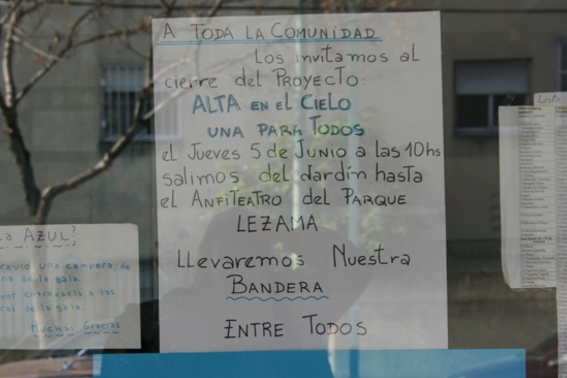 A TODA LA COMUNIDAD
Los invitamos al
cierre del PROYECTO:
ALTA EN EL CIELO
UNA PARA TODOS
el Jueves 5 de JUNIO a las 10hs
salimos del Jardín hasta
el ANFITEATRO del PARQUE
LEZAMA
LLEVAREMOS NUESTRA
BANDERA
ENTRE TODOS
La AZUL?
una campera, de
de la sala.
a las
de la sala.
Muchas Gracias
Lista